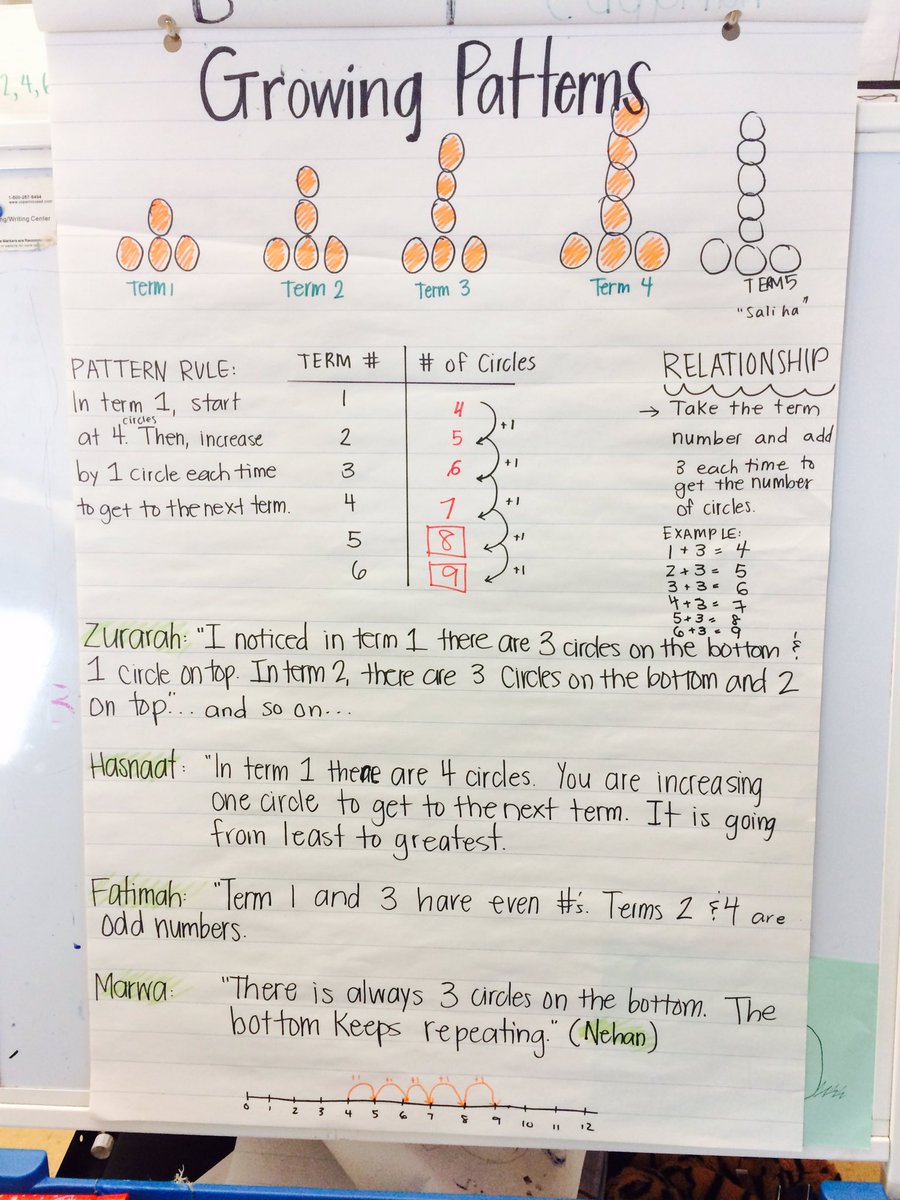 2, 4, 6
1-800-267-8494
ng/Writing Center
Growing Patterns
Term 1
Term 2
Term 3
Term 4
TERM 5
"Saliha"
PATTERN RULE:
In term 1, start
circles
at 4. Then, increase
by 1 circle each time
to get to the next term.
TERM # # of Circles
1 4
2 5
3 6
4 7
5 8
6 9
+1
+1
+1
+1
+1
RELATIONSHIP
→ Take the term
number and add
3 each time to
get the number
of circles.
EXAMPLE:
1 + 3 = 4
2 + 3 = 5
3 + 3 = 6
4 + 3 = 7
5 + 3 = 8
6 + 3 = 9
Zurarah: "I noticed in term 1 there are 3 circles on the bottom &
1 circle on top. In term 2, there are 3 circles on the bottom and 2
on top."... and so on...
Hasnaat: "In term 1 there are 4 circles. You are increasing
one circle to get to the next term. It is going
from least to greatest.
Fatimah: "Term 1 and 3 have even #'s. Terms 2 & 4 are
odd numbers.
Marwa: "There is always 3 circles on the bottom. The
bottom keeps repeating." (Nehan)
+1 +1 +1 +1 +1
0 1 2 3 4 5 6 7 8 9 10 11 12